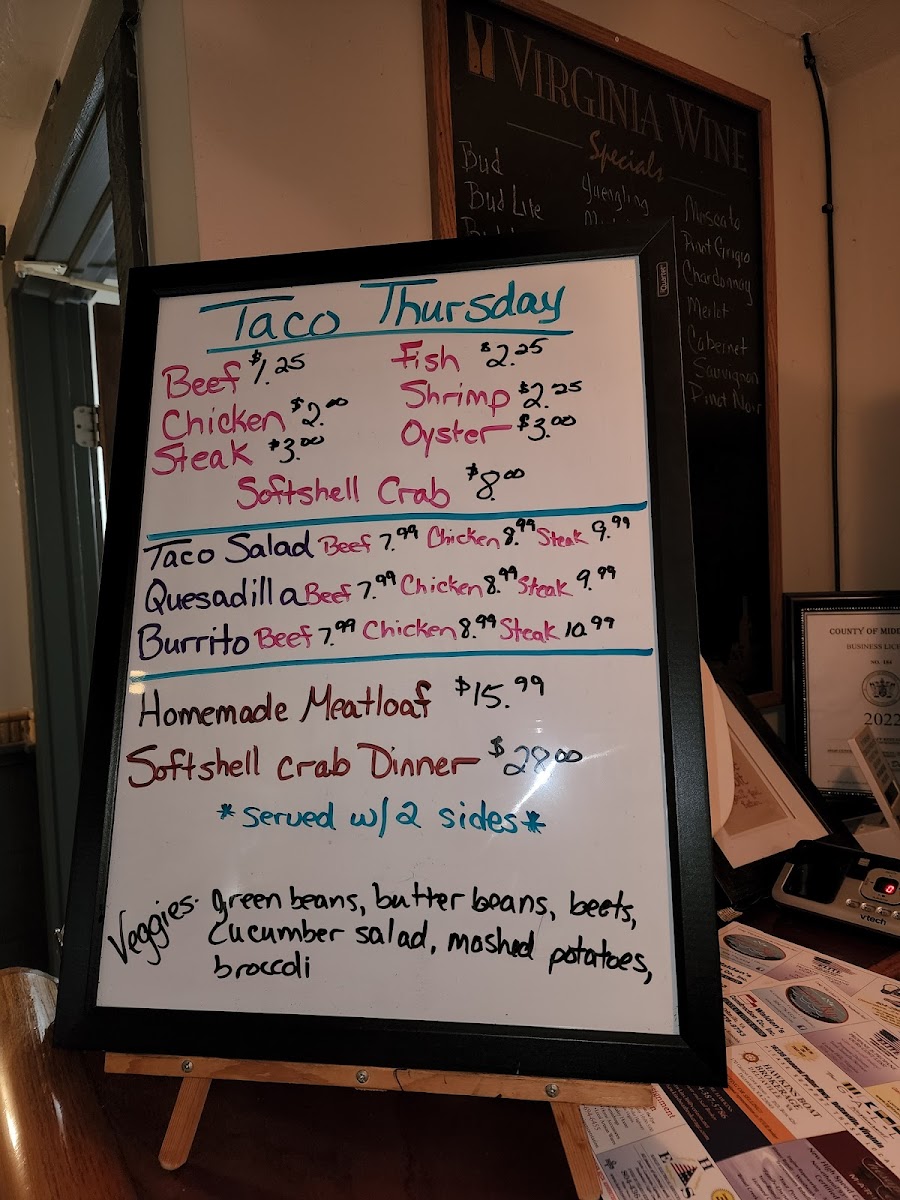 VIRGINIA WINE
Specials
Bud
Bud Lite
Yuengling
Moscato
Pinot Grigio
Chardonnay
Merlot
Cabernet
Sauvignon
Pinot Noir
Quartet
Taco Thursday
Beef $1.25 Fish $2.25
Chicken $2.00 Shrimp $2.25
Steak $3.00 Oyster $3.00
Softshell Crab $8.00
Taco Salad Beef 7.99 Chicken 8.99 Steak 9.99
Quesadilla Beef 7.99 Chicken 8.99 Steak 9.99
Burrito Beef 7.99 Chicken 8.99 Steak 10.99
Homemade Meatloaf $15.99
Softshell crab Dinner $28.00
*served w/2 sides*
Veggies: green beans, butter beans, beets,
cucumber salad, mashed potatoes,
broccoli
COUNTY OF MIDD
BUSINESS LICE
NO. 181
2022
0
vtech
HAWKINS BOAT
BROKERAGE